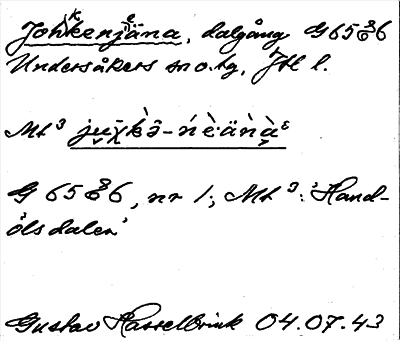 Johkenjäna, dalgång G6586
Undersåkers sn o. tg, Jtl l.
Mt³ jux̄kɔ̀-ńè·änàᵋ
G 6586, nr 1; Mt ³: 'Hand-
ölsdalen'
Gustav Hasselbrink 04.07.43